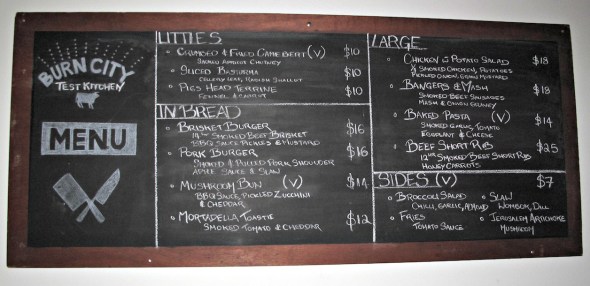 BURN CITY
TEST KITCHEN
MENU
LITTLES
CRUMBED & FRIED CAMEMBERT (V) $10
SMOKED APRICOT CHUTNEY
SLICED BASTURMA $10
CELERY LEAF, RADISH, SHALLOT
PIGS HEAD TERRINE $10
FENNEL & CARROT
IN BREAD
BRISKET BURGER $16
14HR SMOKED BEEF BRISKET
BBQ SAUCE PICKLES & MUSTARD
PORK BURGER $16
SMOKED & PULLED PORK SHOULDER
APPLE SAUCE & SLAW
MUSHROOM BUN (V) $14
BBQ SAUCE, PICKLED ZUCCHINI
& CHEDDAR
MORTADELLA TOASTIE $12
SMOKED TOMATO & CHEDDAR
LARGE
CHICKEN & POTATO SALAD $18
SMOKED CHICKEN, POTATOES
PICKLED ONION, GRAIN MUSTARD
BANGERS & MASH $18
SMOKED BEEF SAUSAGES
MASH & ONION GRAVY
BAKED PASTA (V) $14
SMOKED GARLIC, TOMATO
EGGPLANT & CHEESE
BEEF SHORT RIB $25
12HR SMOKED BEEF SHORT RIB
HONEY CARROTS
SIDES (V) $7
BROCCOLI SALAD
CHILLI, GARLIC, ALMOND
FRIES
TOMATO SAUCE
SLAW
WOMBOK, DILL
JERUSALEM ARTICHOKE
MUSHROOM